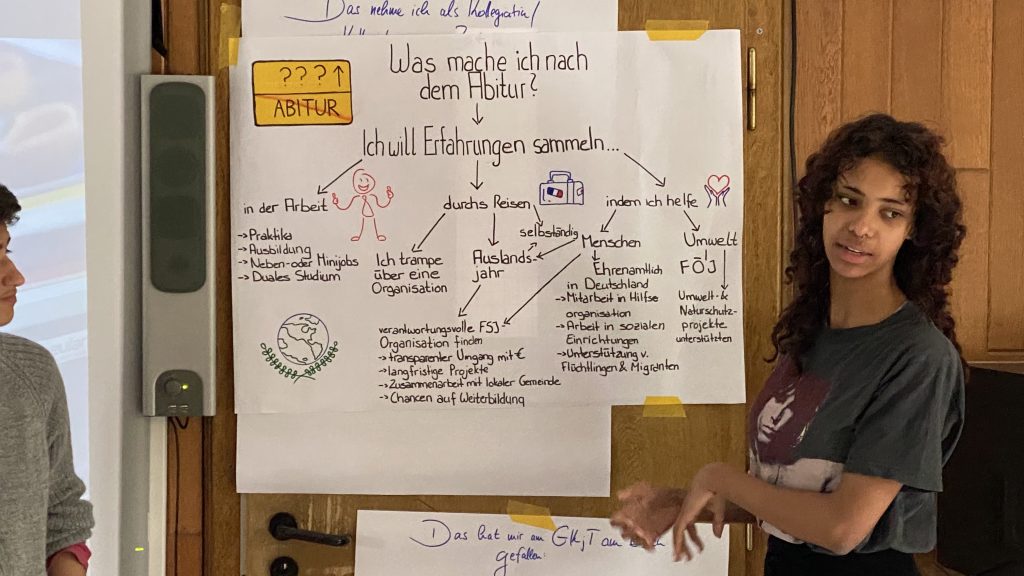 Das nehme ich als Kollegiatin/
???↑
ABITUR
Was mache ich nach
dem Abitur?
Ich will Erfahrungen sammeln...
in der Arbeit
→Praktika
→Ausbildung
→Neben-oder Minijobs
→Duales Studium
durchs Reisen
selbständig
Ich trampe
über eine
Organisation
Auslands-
jahr
verantwortungsvolle FSJ
Organisation finden
→transparenter Umgang mit €
→langfristige Projekte
→Zusammenarbeit mit lokaler Gemeinde
→Chancen auf Weiterbildung
indem ich helfe
Menschen
Ehrenamtlich
in Deutschland
→Mitarbeit in Hilfs
organisation
→Arbeit in sozialen
Einrichtungen
→Unterstützung v.
Flüchtlingen & Migranten
Umwelt
FÖJ
Umwelt-&
Naturschutz-
projekte
unterstützten
Das hat mir am
gefallen: